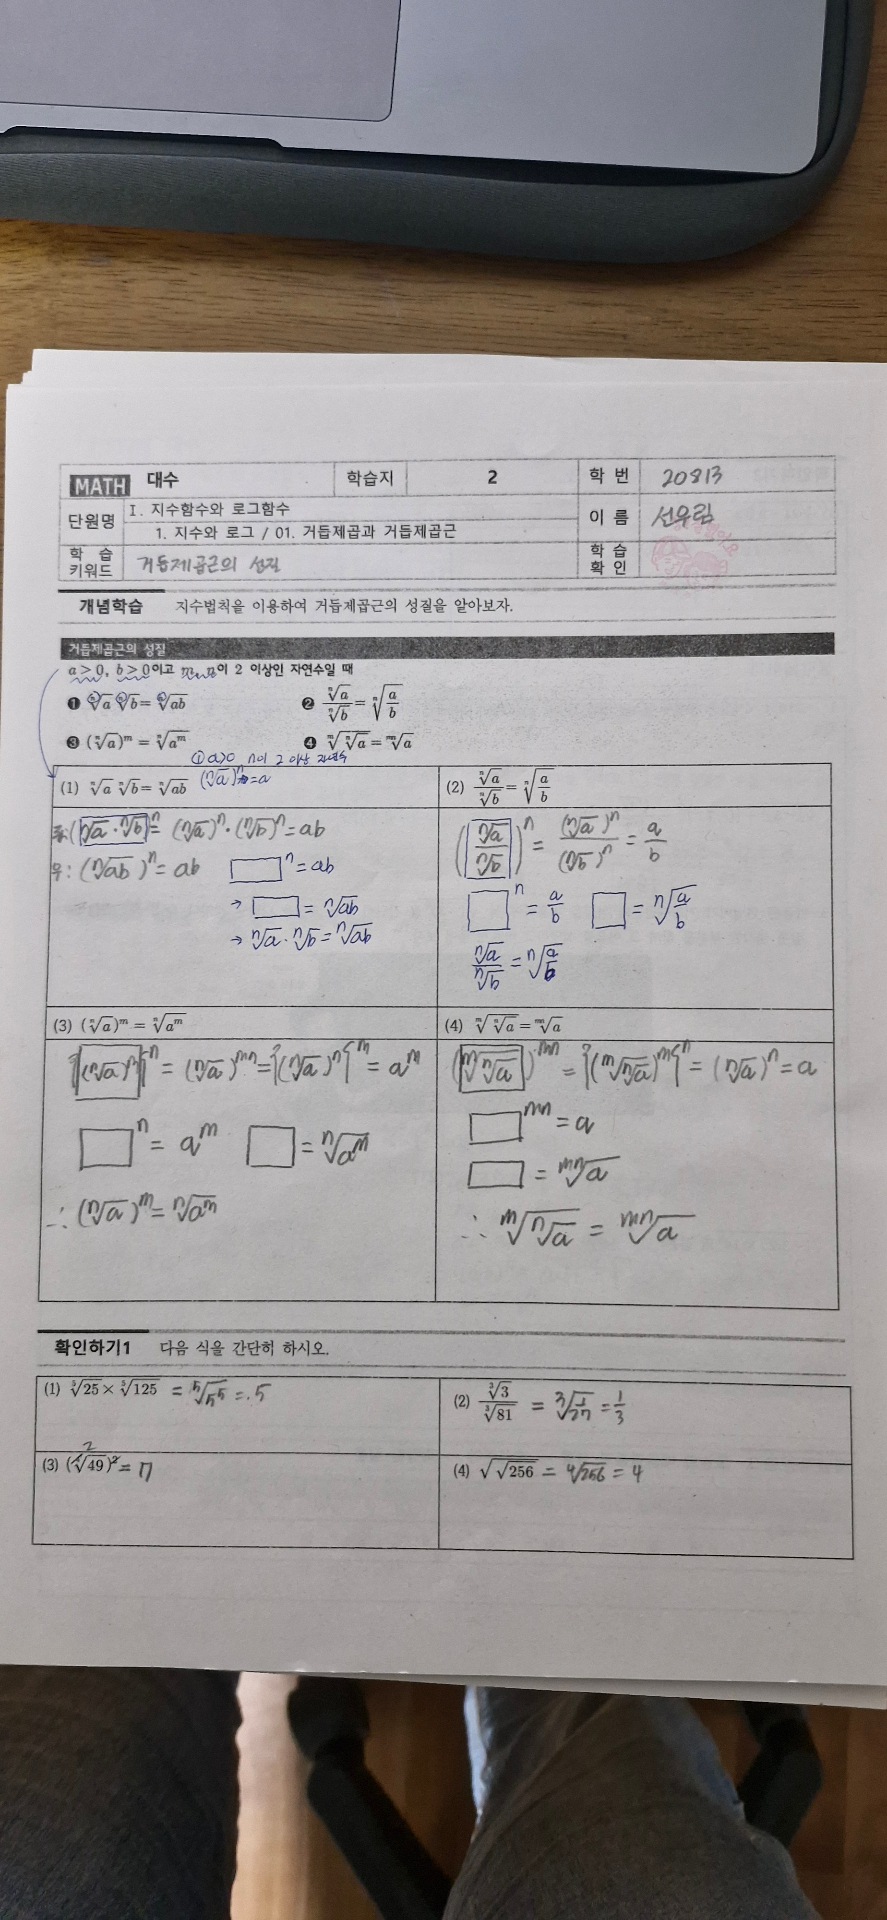 MATH 대수 학습지 2 학 번 20813
단원명 Ⅰ. 지수함수와 로그함수 이 름 선우림
1. 지수와 로그 / 01. 거듭제곱과 거듭제곱근
학 습 키워드 거듭제곱근의 성질 학 습 확 인
개념학습 지수법칙을 이용하여 거듭제곱근의 성질을 알아보자.
거듭제곱근의 성질
a>0, b>0이고 m, n이 2 이상인 자연수일 때
❶ ⁿ√a ⁿ√b = ⁿ√ab ❷ ⁿ√a / ⁿ√b = ⁿ√(a/b)
❸ (ⁿ√a)ᵐ = ⁿ√aᵐ ❹ ᵐ√ⁿ√a = ᵐⁿ√a
① a>0 n이 2 이상 자연수
(1) ⁿ√a ⁿ√b = ⁿ√ab (ⁿ√a)ⁿ = a
좌: (ⁿ√a · ⁿ√b)ⁿ = (ⁿ√a)ⁿ · (ⁿ√b)ⁿ = ab
우: (ⁿ√ab)ⁿ = ab □ⁿ = ab
→ □ = ⁿ√ab
→ ⁿ√a · ⁿ√b = ⁿ√ab
(2) ⁿ√a / ⁿ√b = ⁿ√(a/b)
(ⁿ√a / ⁿ√b)ⁿ = (ⁿ√a)ⁿ / (ⁿ√b)ⁿ = a/b
□ⁿ = a/b □ = ⁿ√(a/b)
ⁿ√a / ⁿ√b = ⁿ√(a/b)
(3) (ⁿ√a)ᵐ = ⁿ√aᵐ
{(ⁿ√a)ᵐ}ⁿ = (ⁿ√a)ᵐⁿ = {(ⁿ√a)ⁿ}ᵐ = aᵐ
□ⁿ = aᵐ □ = ⁿ√aᵐ
∴ (ⁿ√a)ᵐ = ⁿ√aᵐ
(4) ᵐ√ⁿ√a = ᵐⁿ√a
(ᵐ√ⁿ√a)ᵐⁿ = {(ᵐ√ⁿ√a)ᵐ}ⁿ = (ⁿ√a)ⁿ = a
□ᵐⁿ = a
□ = ᵐⁿ√a
∴ ᵐ√ⁿ√a = ᵐⁿ√a
확인하기1 다음 식을 간단히 하시오.
(1) ⁵√25 × ⁵√125 = ⁵√5⁵ = 5
(2) ³√3 / ³√81 = ³√(1/27) = 1/3
(3) (⁴√49)² = 7
(4) √√256 = ⁴√256 = 4